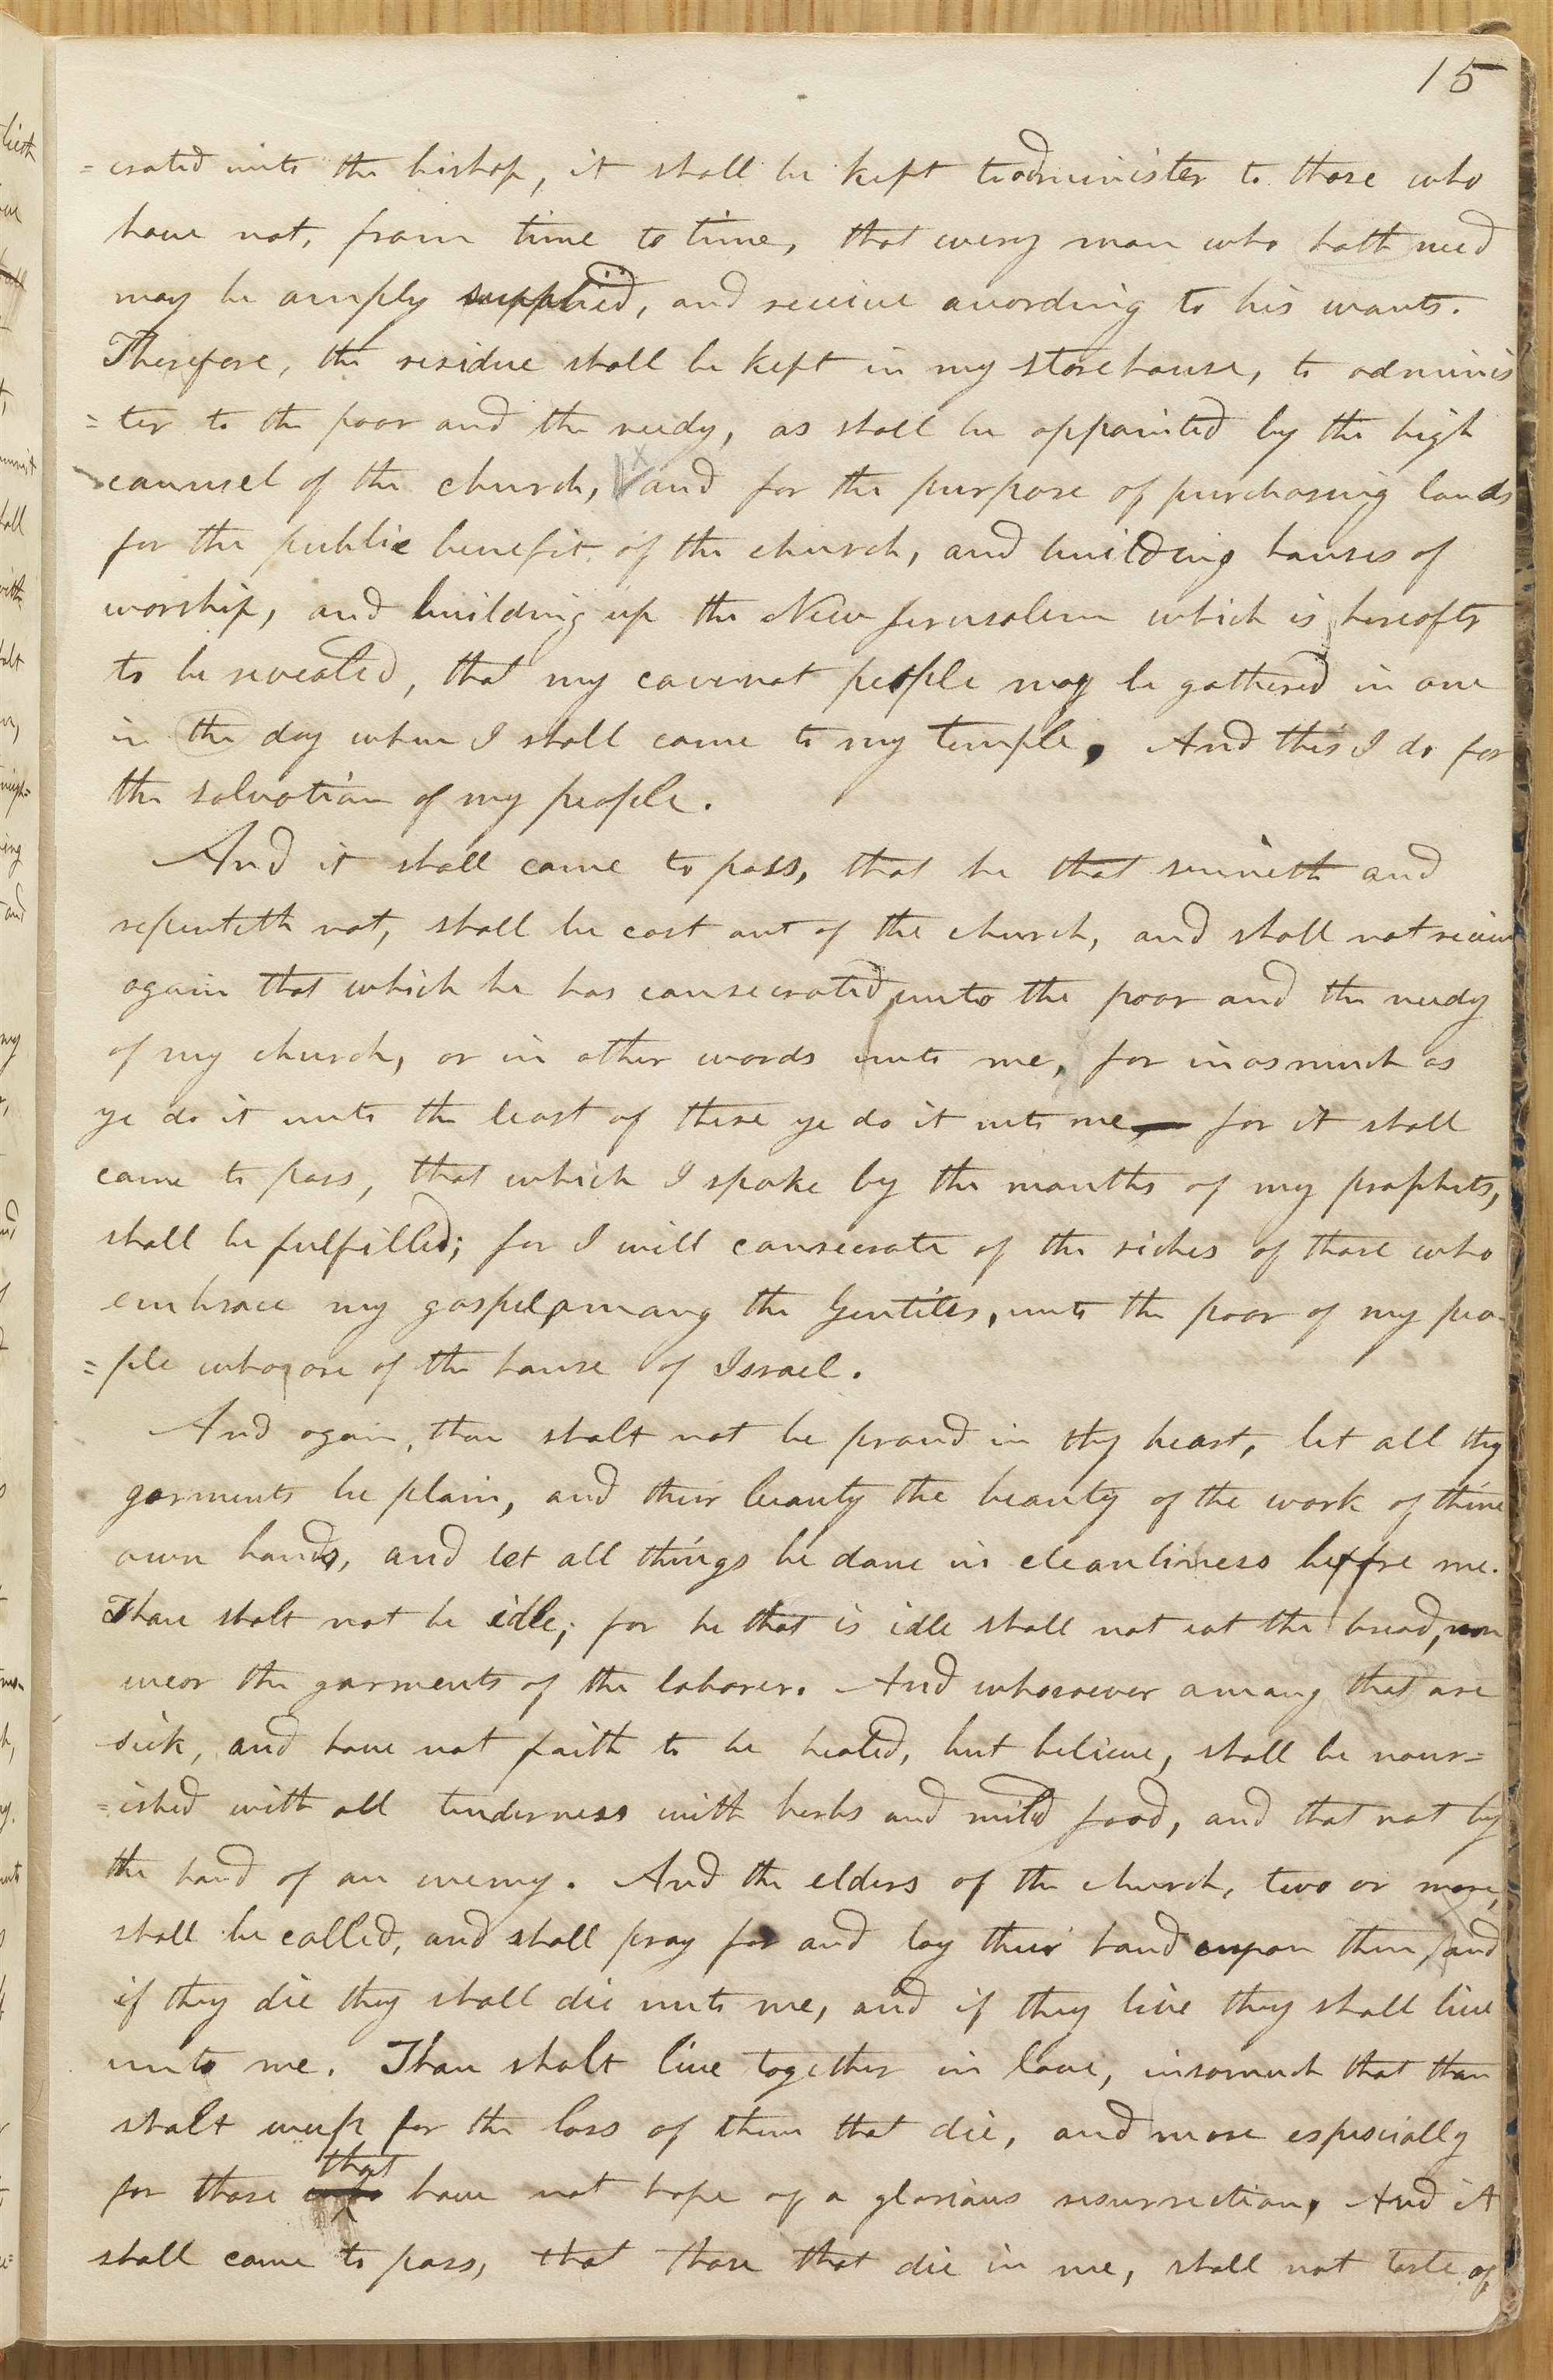 15
=crated unto the bishop, it shall be kept to administer to those who
have not, from time to time, that every man who hath need
may be amply supplied, and receive according to his wants.
Therefore, the residue shall be kept in my storehouse, to adminis
=ter to the poor and the needy, as shall be appointed by the high
counsel of the church, and for the purpose of purchasing lands
for the public benefit of the church, and building houses of
worship, and building up the New Jerusalem which is hereafter
to be revealed, that my covenat people may be gathered in one
in the day when I shall come to my temple. And this I do for
the salvation of my people.
And it shall come to pass, that he that sinneth and
repenteth not, shall be cast out of the church, and shall not receive
again that which he has consecrated unto the poor and the needy
of my church, or in other words unto me, for inasmuch as
ye do it unto the least of these ye do it unto me, — for it shall
come to pass, that which I spake by the mouths of my prophets,
shall be fulfilled; for I will consecrate of the riches of those who
embrace my gospel, among the Gentiles, unto the poor of my peo-
=ple who are of the house of Israel.
And again, thou shalt not be proud in thy heart, let all thy
garments be plain, and their beauty the beauty of the work of thine
own hands, and let all things be done in cleanliness before me.
Thou shalt not be idle; for he that is idle shall not eat the bread, nor
wear the garments of the laborer. And whosoever among that are
sick, and have not faith to be healed, but believe, shall be nour=
=ished with all tenderness with herbs and mild food, and that not by
the hand of an enemy. And the elders of the church, two or more,
shall be called, and shall pray for and lay their hands upon them, and
if they die they shall die unto me, and if they live they shall live
unto me. Thou shalt live together in love, insomuch that thou
shalt weep for the loss of them that die, and more especially
that
for those who have not hope of a glorious resurrection, And it
shall come to pass, that those that die in me, shall not taste of